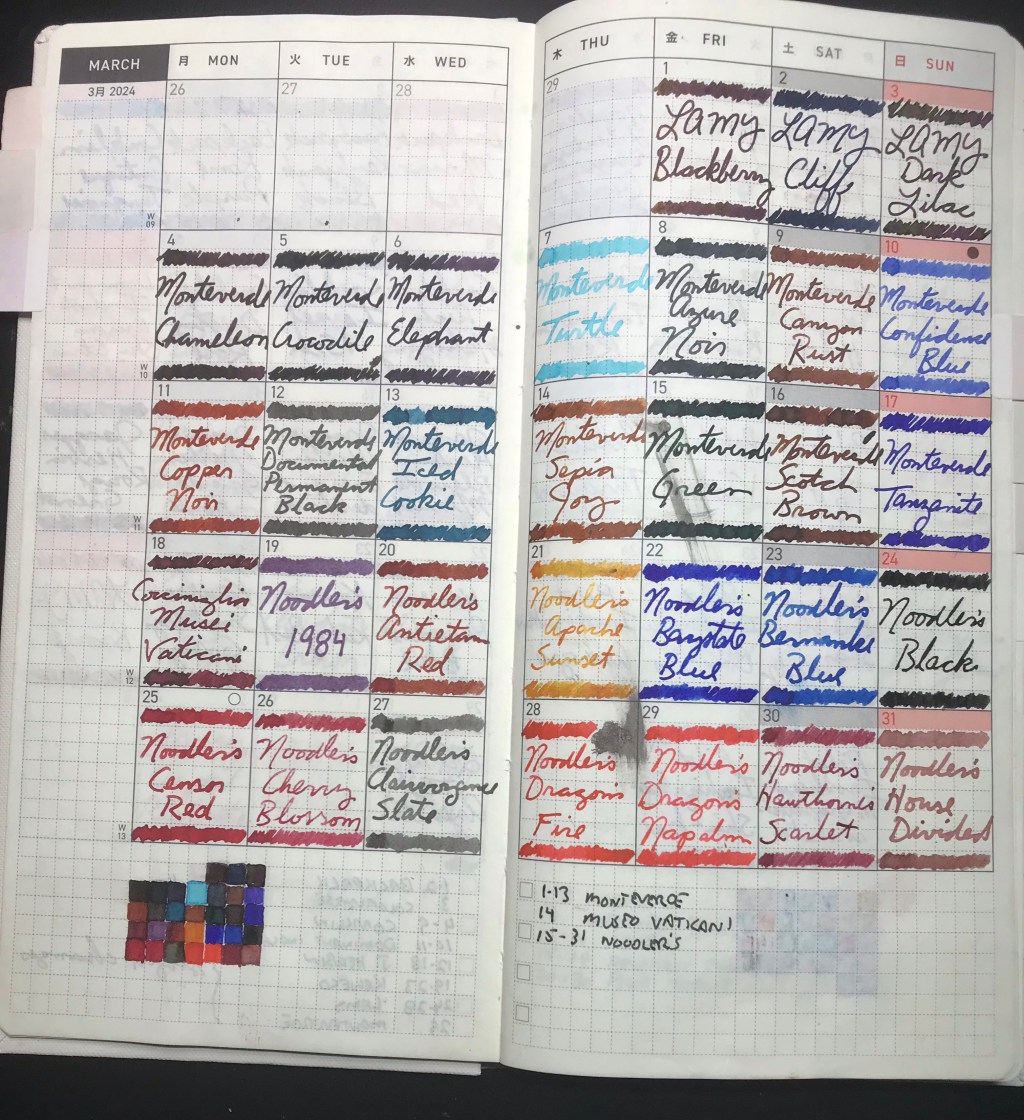 MARCH
月 MON
火 TUE
水 WED
木 THU
金 FRI
土 SAT
日 SUN
3月 2024
26
27
28
29
1
LAMY
Blackberry
2
LAMY
Cliff
3
LAMY
Dark
Lilac
W
09
4
Monteverde
Chameleon
5
Monteverde
Crocodile
6
Monteverde
Elephant
7
Monteverde
Turtle
8
Monteverde
Azure
Noir
9
Monteverde
Canyon
Rust
10
Monteverde
Confidence
Blue
W
10
11
Monteverde
Copper
Noir
12
Monteverde
Documental
Permanent
Black
13
Monteverde
Iced
Cookie
14
Monteverde
Sepia
Joy
15
Monteverde
Green
16
Monteverde
Scotch
Brown
17
Monteverde
Tanzanite
W
11
18
Musei
Vaticani
19
Noodler's
1984
20
Noodler's
Antietam
Red
21
Noodler's
Apache
Sunset
22
Noodler's
Baystate
Blue
23
Noodler's
Bernanke
Blue
24
Noodler's
Black
W
12
25
Noodler's
Censor
Red
26
Noodler's
Cherry
Blossom
27
Noodler's
Slate
28
Noodler's
Dragon's
Fire
29
Noodler's
Dragon's
Napalm
30
Noodler's
Hawthorne's
Scarlet
31
Noodler's
House
Divided
W
13
1-13 MONTEVERDE
14 MUSEO VATICANI
15-31 NOODLER'S